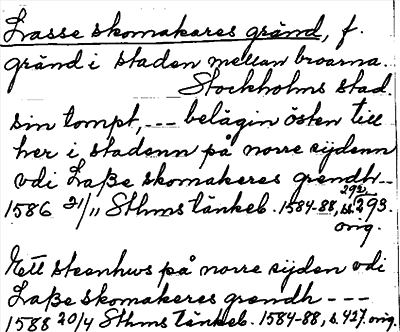 Lasse skomakares gränd, f.
gränd i staden mellan broarna.
Stockholms stad.
sin tompt, --- belägin östen till
her i stadenn på norre sijdenn
vdi Laße skomakeres grendh--
1586 21/11 Sthms tänkeb. 1584-88, s. 293.
orig.
Ett steenhws på norre sijden vdi
Laße skomakeres grendh ---
1588 20/4 Sthms tänkeb. 1584-88, s. 427. orig.